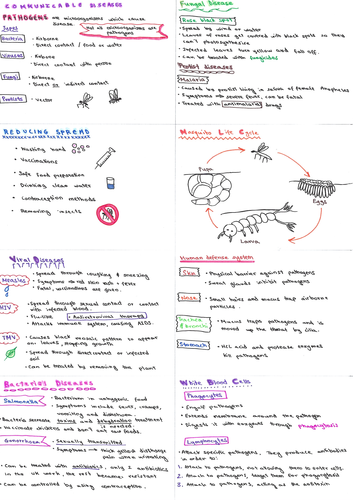 COMMUNICABLE DISEASES
PATHOGENS are microorganisms which cause
disease
Types
not all microorganisms are
pathogens
Bacteria
• Airborne
• Direct contact / food or water
Viruses
• Airborne
• Direct contact with person
Fungi
• Airborne
• Direct or indirect contact
Protists
• Vector
Fungal Disease
Rose black spot
• Spread by wind or water
• Leaves of roses get covered with black spots so they
can't photosynthesise
• Infected leaves turn yellow and fall off.
• Can be treated with fungicides
Protist diseases
Malaria
• Caused by protist living in saliva of female Anopheles
• Symptoms → severe fever, can be fatal
• Treated with antimalarial drugs
REDUCING SPREAD
• Washing hand
• Vaccinations
• Safe food preparation
• Drinking clean water
• Contraception methods
• Removing insects
Mosquito Life Cycle
Pupa
Eggs
Larva
Viral Diseases
Measles
• Spread through coughing & sneezing
• Symptoms → red skin rash + fever
• Fatal, vaccinations are given.
HIV
• Spread through sexual contact or contact
with infected blood.
• Flu-like
Antiretroviral therapy
• Attacks immune system, causing AIDS
TMV
• Causes black mosaic pattern to appear
on leaves, stopping growth
• Spread through direct contact or infected
soil
• Can be treated by removing the plant
Human defence system
Skin
• Physical barrier against pathogens
• Sweat glands inhibit pathogens
Nose
• Small hairs and mucus trap airborne
particles
Trachea
& Bronchi
• Mucus traps pathogens and is
moved up the throat by cilia.
Stomach
• HCl acid and protease enzymes
kill pathogens
Bacterial Diseases
Salmonella
• Bacterium in unhygenic food
• Symptoms include fever, cramps,
vomiting and diarrhoea
• Bacteria secrete toxins and
• Vaccinate chickens and don't eat raw foods.
Gonorrhoea
• Sexually transmitted
• Symptoms → thick yellow discharge
pain when urinating
• Can be treated with antibiotics, only 2 antibiotics
in the uk work, the rest became resistant
• Can be controlled by using contraception.
White Blood Cells
Phagocytes
• Engulf pathogens
• Extends membrane around the pathogen
• Digests it with enzymes through phagocytosis
Lymphocytes
• Attack specific pathogens, they produce antibodies
in order to:
1. Attach to pathogens, not allowing them to enter cells.
2. Attach to pathogens, target them for phagocytosis
3. Attach to pathogens, acting as the antitoxin